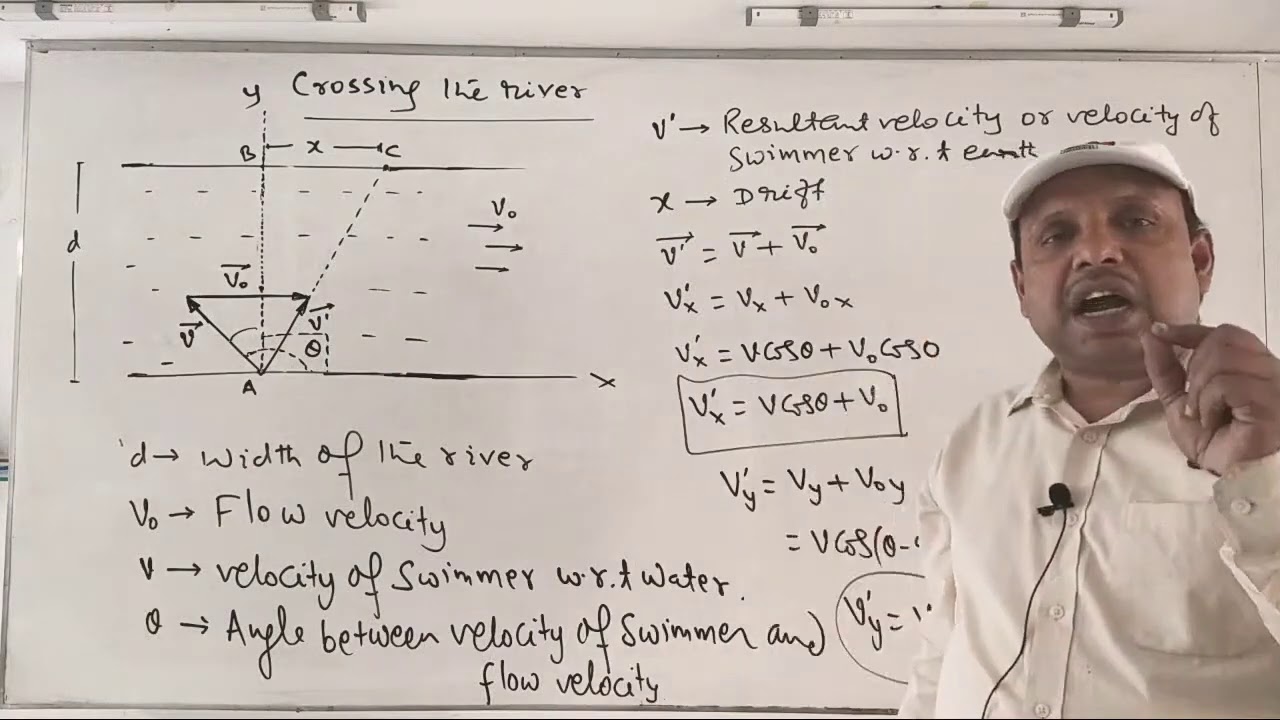 Crossing the river
y
B
x
C
d
V₀
V₀
V
V'
θ
A
X
d → Width of the river
V₀ → Flow velocity
V → velocity of swimmer w.r.t water.
θ → Angle between velocity of swimmer and
flow velocity
V' → Resultant velocity or velocity of
swimmer w.r.t earth
x → Drift
V' = V + V₀
V'x = Vx + V₀x
V'x = VCosθ + V₀Cos0
V'x = VCosθ + V₀
V'y = Vy + V₀y
= VCos(θ-
V'y =